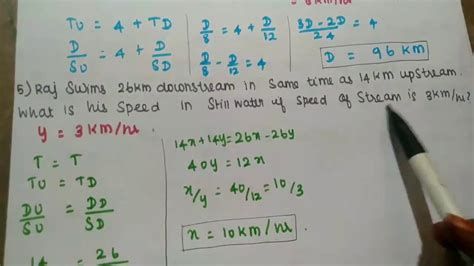 TU = 4 + TD
D/SU = 4 + D/SD
D/8 = 4 + D/12
3D - 2D/24 = 4
D = 96 km
5) Raj Swims 26km downstream in same time as 14 km upstream.
What is his speed in still water if speed of stream is 3km/hr?
y = 3 km/hr
T = T
TU = TD
DU/SU = DD/SD
14 = 26
14x+14y=26x-26y
40y = 12x
x/y = 40/12 = 10/3
x = 10 km/hr